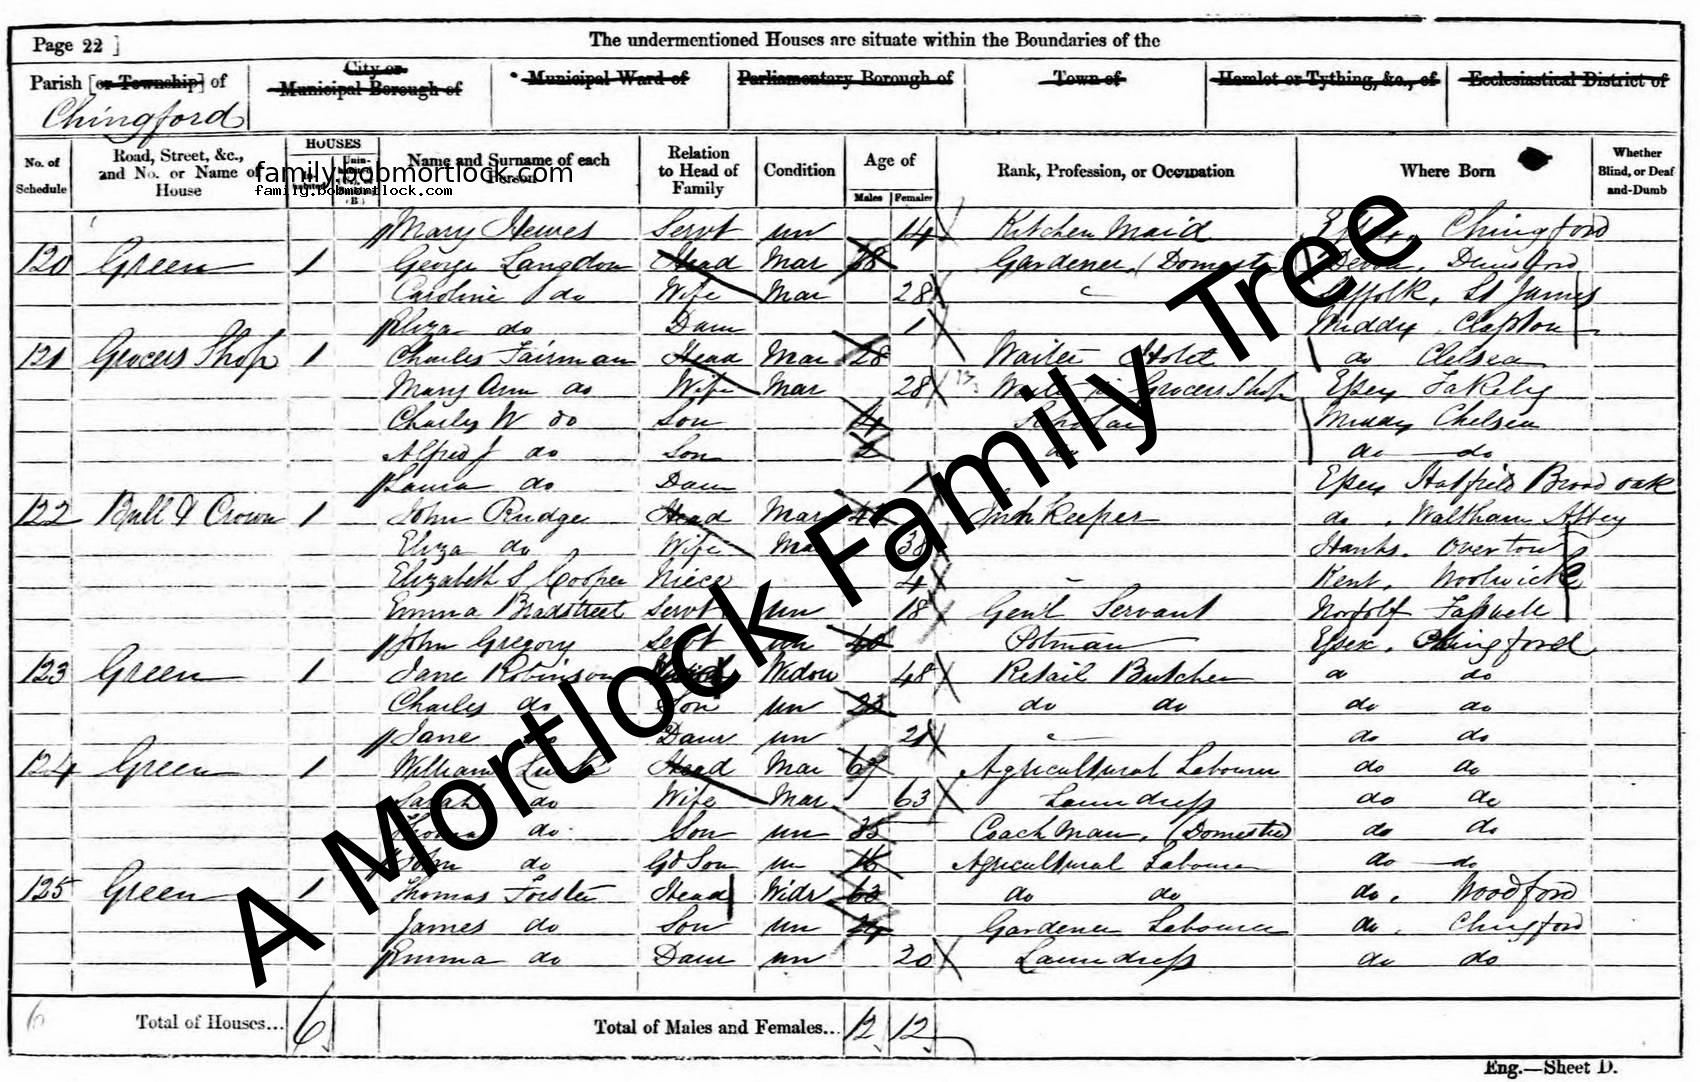 Page 22 ]
The undermentioned Houses are situate within the Boundaries of the
Parish [or Township] of
Chingford
City or Municipal Borough of
Municipal Ward of
Parliamentary Borough of
Town of
Hamlet or Tything, &c., of
Ecclesiastical District of
No. of Schedule
Road, Street, &c., and No. or Name of House
HOUSES
(B)
Name and Surname of each Person
Relation to Head of Family
Condition
Age of
Males
Females
Rank, Profession, or Occupation
Where Born
Whether Blind, or Deaf and-Dumb
family.bobmortlock.com
family.bobmortlock.com
Mary Hewes Servt un 14 Kitchen Maid Chingford
120 Green 1 George Langdon Head Mar 38 Gardener (Domestic Devon,
Caroline do Wife Mar 28 Suffolk, St James
Eliza do Daur 1 Middx Clapton
121 Grocers Shop 1 Charles Fairman Head Mar 28 Waiter Hotel do Chelsea
Mary Ann do Wife Mar 28 Grocers Shop Essex Takeley
Charles W do Son 4 Scholar Middx Chelsea
Alfred J do Son 2 do do do
Laura do Daur 1 Essex Hatfield Broad oak
122 Bull & Crown 1 John Rudge Head Mar Innkeeper do, Waltham Abbey
Eliza do Wife Mar 38 Hants. Overton
Elizabeth S Cooper Niece 4 Kent, Woolwich
Emma Bradstreet Servt un 18 Genl Servant Norfolk
John Gregory Servt un 40 Potman Essex, Chingford
123 Green 1 Jane Robinson Head Widow 48 Retail Butcher do do
Charles do Son un 23 do do do do
Jane do Daur un 21 do do
124 Green 1 William Head Mar 67 Agricultural Labourer do do
Sarah do Wife Mar 63 Laundress do do
Thomas do Son un 35 Coachman, (Domestic) do do
John do Gd Son un 16 Agricultural Labourer do do
125 Green 1 Thomas Forster Head Widr 63 do do do, Woodford
James do Son un 24 Gardener Labourer do, Chingford
Emma do Daur un 20 Laundress do do
6 Total of Houses... 6 Total of Males and Females... 12 12
Eng.—Sheet D.
A Mortlock Family Tree